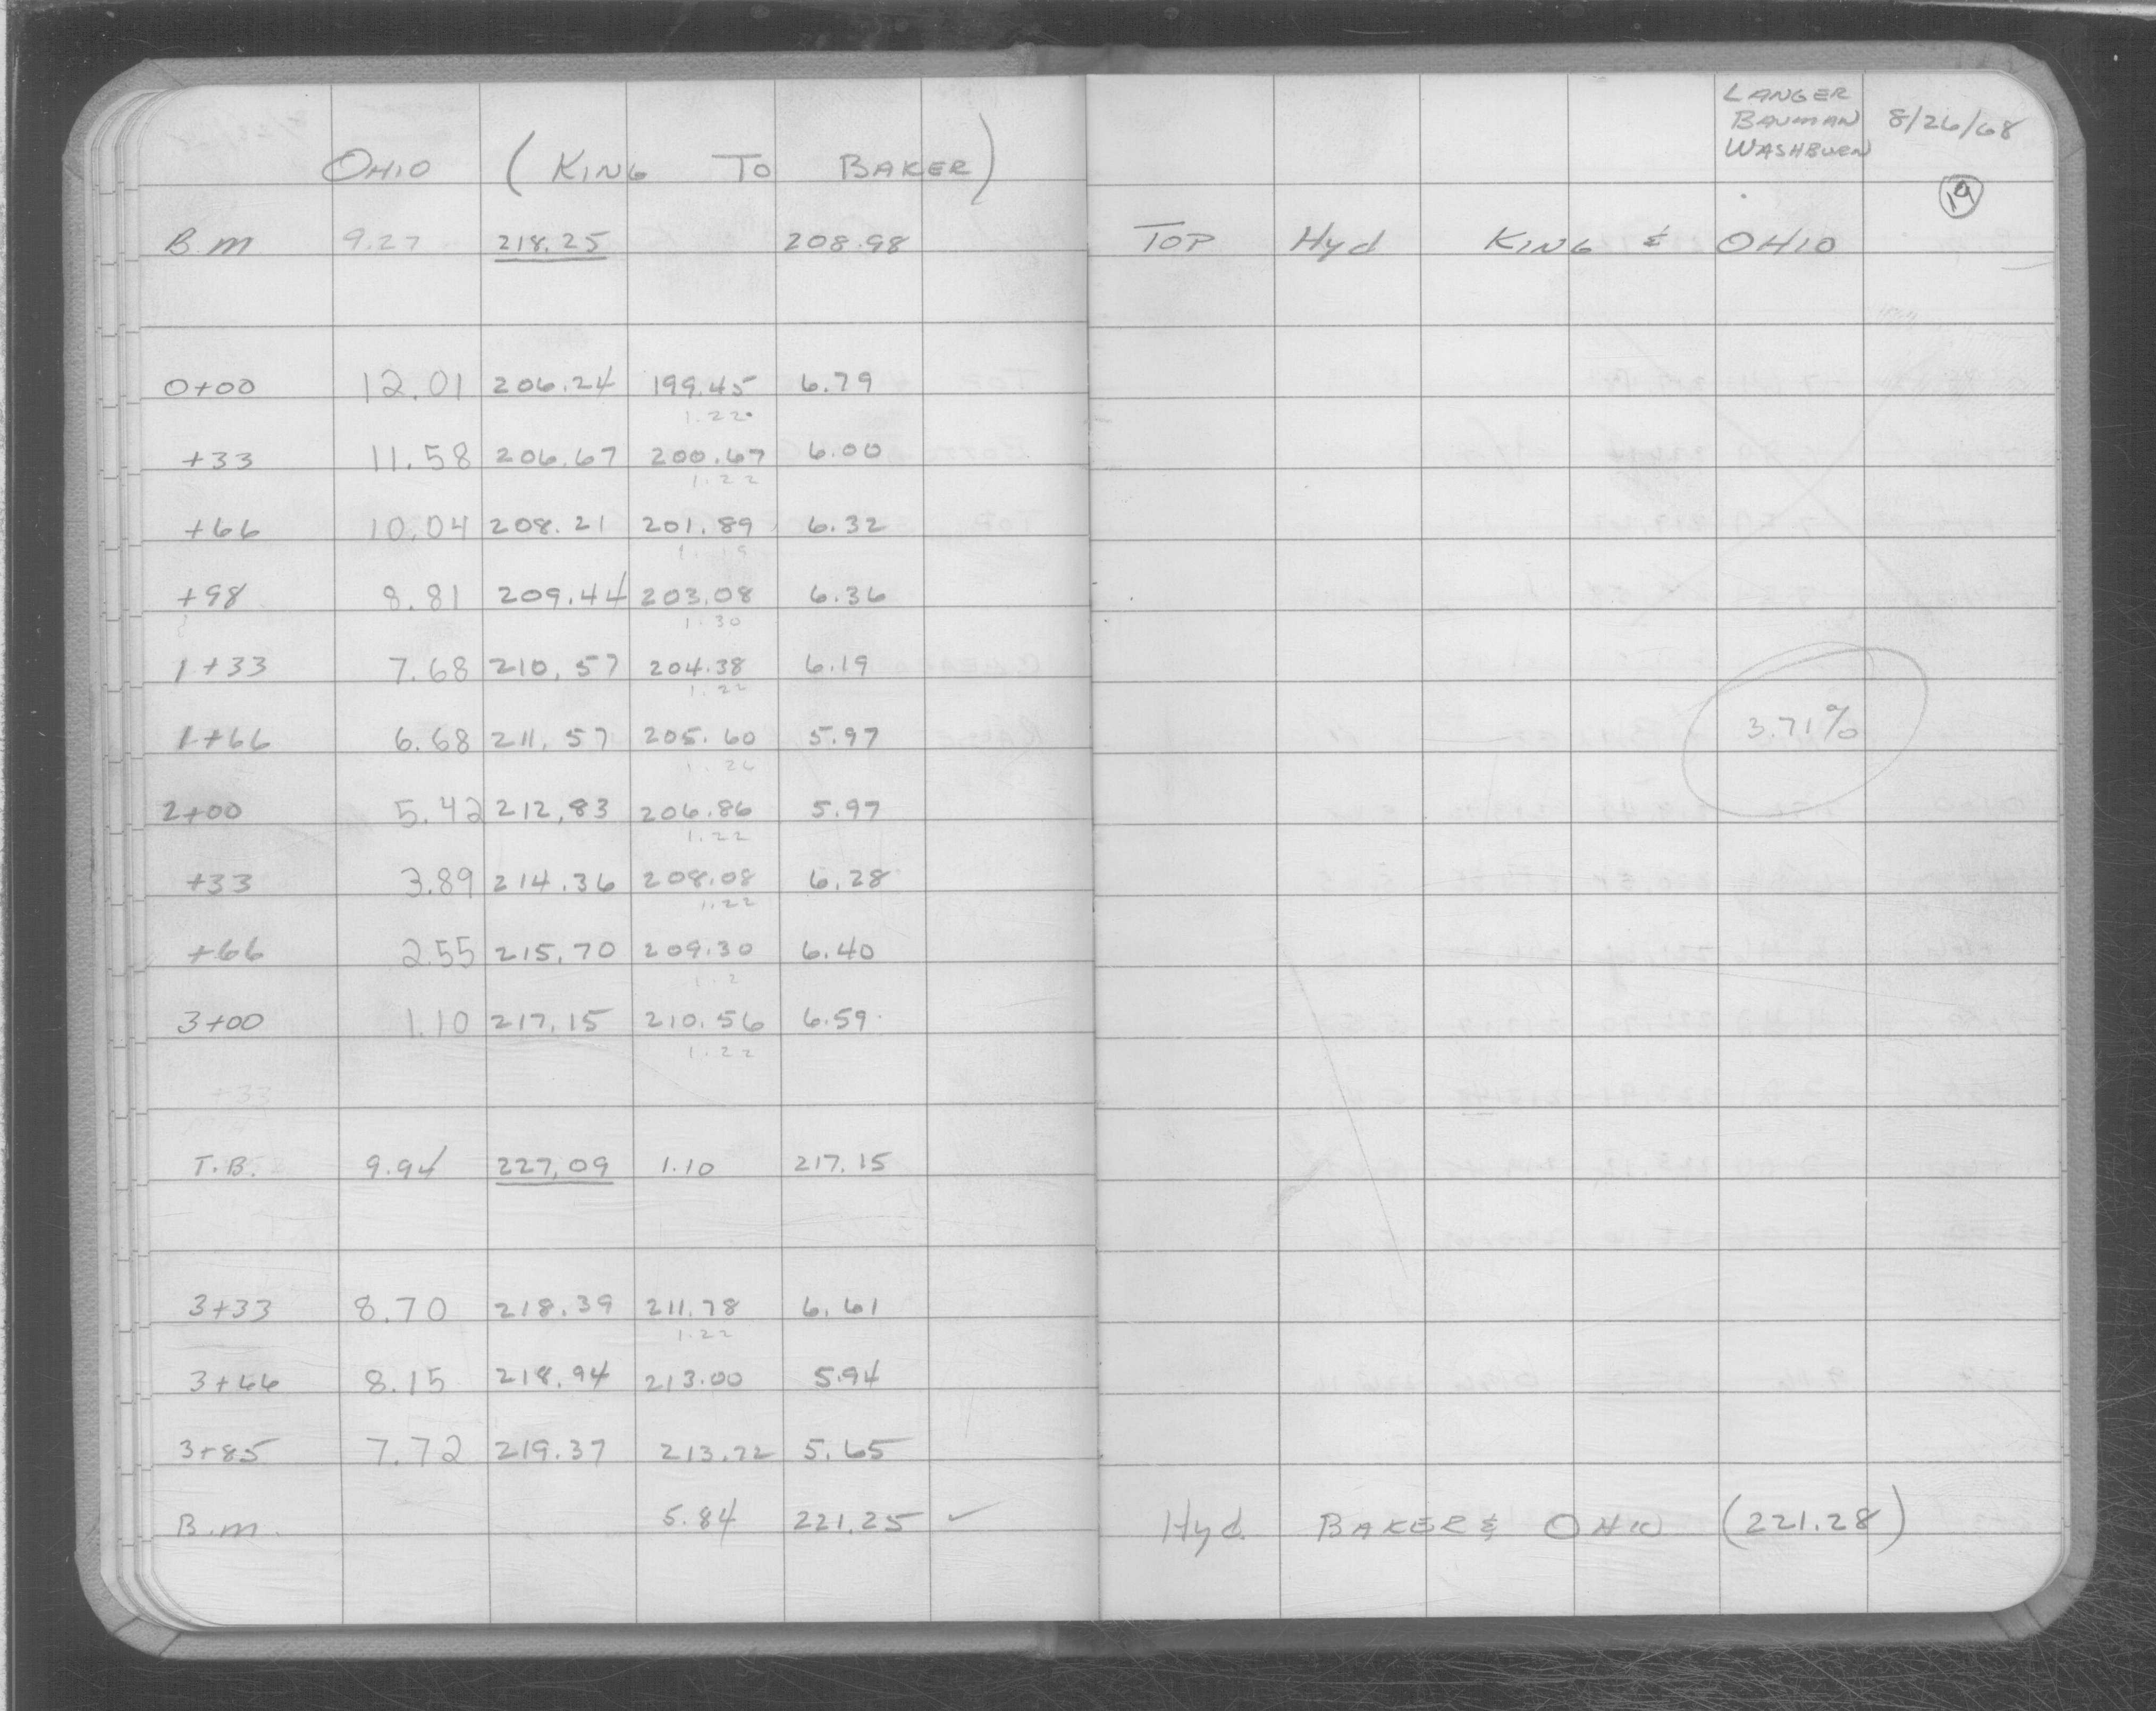 OHIO ( KING TO BAKER )
B.M 9.27 218.25 208.98
0+00 12.01 206.24 199.45 6.79
1.22
+33 11.58 206.67 200.67 6.00
1.22
+66 10.04 208.21 201.89 6.32
1.19
+98 8.81 209.44 203.08 6.36
1.30
1+33 7.68 210.57 204.38 6.19
1.22
1+66 6.68 211.57 205.60 5.97
1.26
2+00 5.42 212.83 206.86 5.97
1.22
+33 3.89 214.36 208.08 6.28
1.22
+66 2.55 215.70 209.30 6.40
3+00 1.10 217.15 210.56 6.59
1.22
+33
T.B. 9.94 227.09 1.10 217.15
3+33 8.70 218.39 211.78 6.61
1.22
3+66 8.15 218.94 213.00 5.94
3+85 7.72 219.37 213.72 5.65
B.m. 5.84 221.25 ✓
LANGER
BAUMAN 8/26/68
WASHBURN
19
TOP Hyd KING & OHIO
3.71%
Hyd. BAKER & OHIO (221.28)